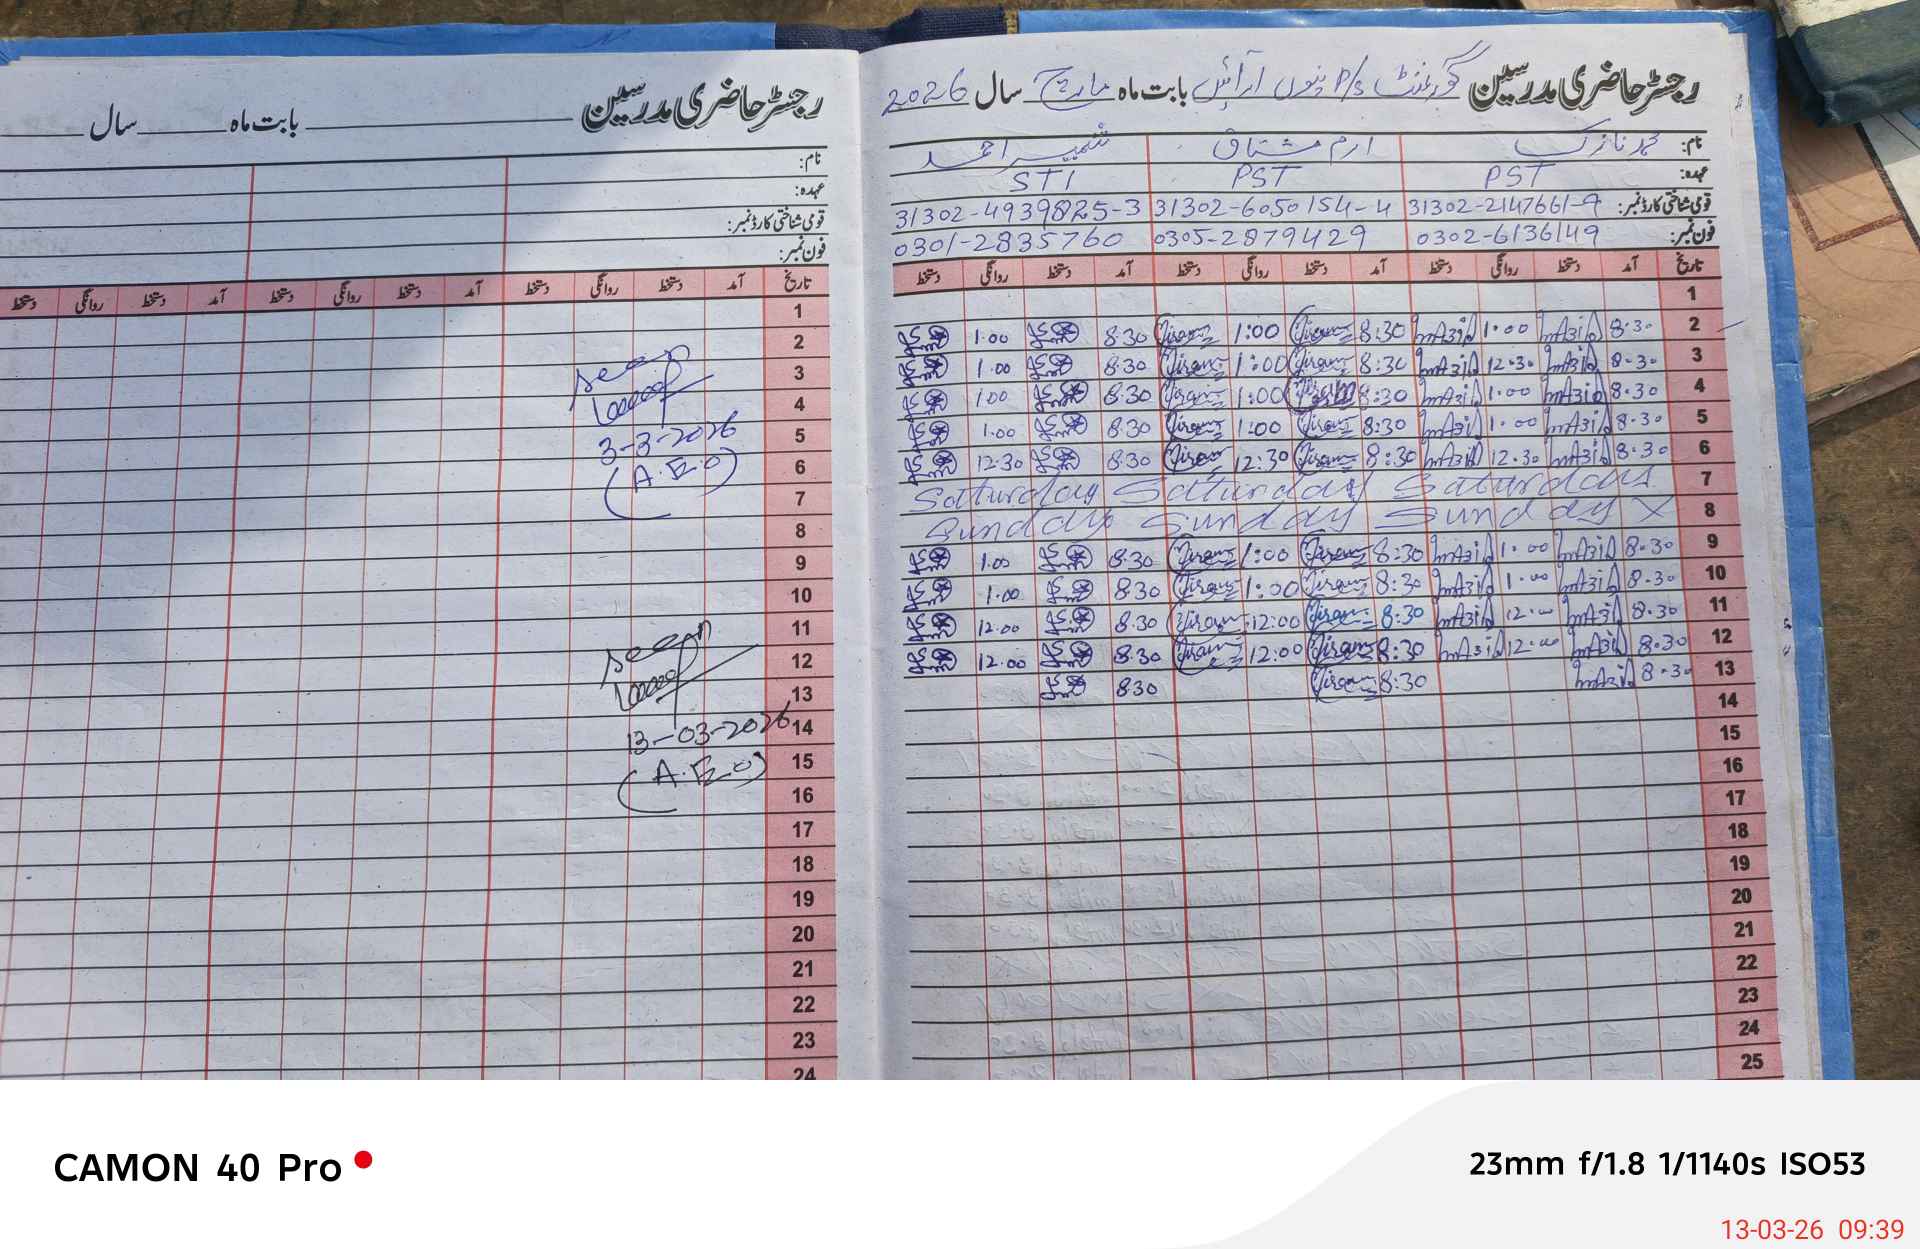 رجسٹر حاضری مدرسین گورنمنٹ P/s بابت ماہ مارچ سال 2026
نام: محمد نازک ارم مشتاق شبیر احمد
عہدہ: PST PST STI
قومی شناختی کارڈ نمبر: 31302-2147661-9 31302-6050154-4 31302-4939825-3
فون نمبر: 0302-6136149 0305-2879429 0301-2835760
تاریخ آمد دستخط روانگی دستخط آمد دستخط روانگی دستخط آمد دستخط روانگی دستخط
1
2 8.30 1.00 8:30 1:00 8.30 1.00
3 8.30 12.30 8:30 1:00 8.30 1.00
4 8.30 1.00 8:30 1:00 8.30 1.00
5 8.30 1.00 8:30 1:00 8.30 1.00
6 8.30 12.30 8:30 12:30 8.30 12.30
7 Saturday Saturday Saturday
8 Sunday Sunday Sunday X
9 8.30 1.00 8:30 1:00 8.30 1.00
10 8.30 1.00 8:30 1:00 8.30 1.00
11 8.30 12.00 8:30 12:00 8.30 12.00
12 8.30 12.00 8:30 12:00 8.30 12.00
13 8.30 8:30 8.30
14
15
16
17
18
19
20
21
22
23
24
25
رجسٹر حاضری مدرسین بابت ماہ سال
نام:
عہدہ:
قومی شناختی کارڈ نمبر:
فون نمبر:
تاریخ آمد دستخط روانگی دستخط آمد دستخط روانگی دستخط آمد دستخط روانگی دستخط
1
2
3 seen
4
5 3-3-2026
6 (A.E.O)
7
8
9
10
11
12 seen
13
14 13-03-2026
15 (A.E.O)
16
17
18
19
20
21
22
23
24
CAMON 40 Pro
23mm f/1.8 1/1140s ISO53
13-03-26 09:39